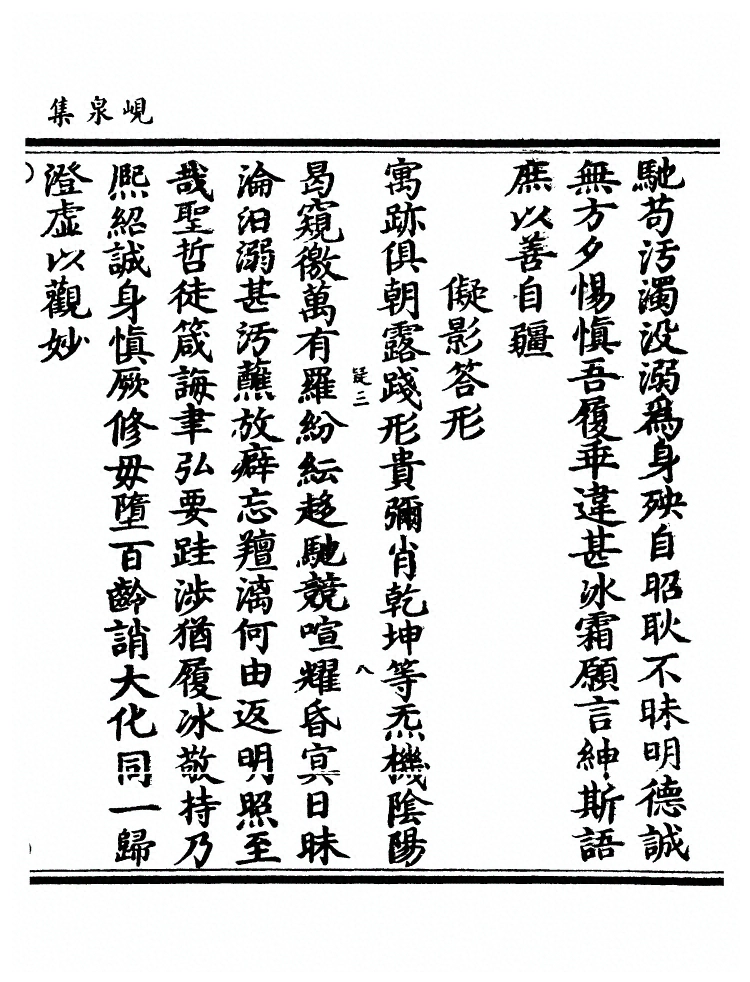 峴泉集
馳苟污濁没溺爲身殃自昭耿不昧明德誠
無方夕惕慎吾履乖違甚冰霜願言紳斯語
庶以善自疆
儗影答形
寓跡俱朝露踐形貴彌肖乾坤等炁機陰陽
曷窺徼萬有羅紛紜趍馳競喧耀昏㝠日昧
淪汨溺甚污蘸放癖忘羶漓何由返明照至
哉聖哲徒箴誨聿弘要跬涉猶履冰敬持乃
熈紹誠身慎厥修毋墮百齡誚大化同一歸
澄虚以觀妙
疑三
八